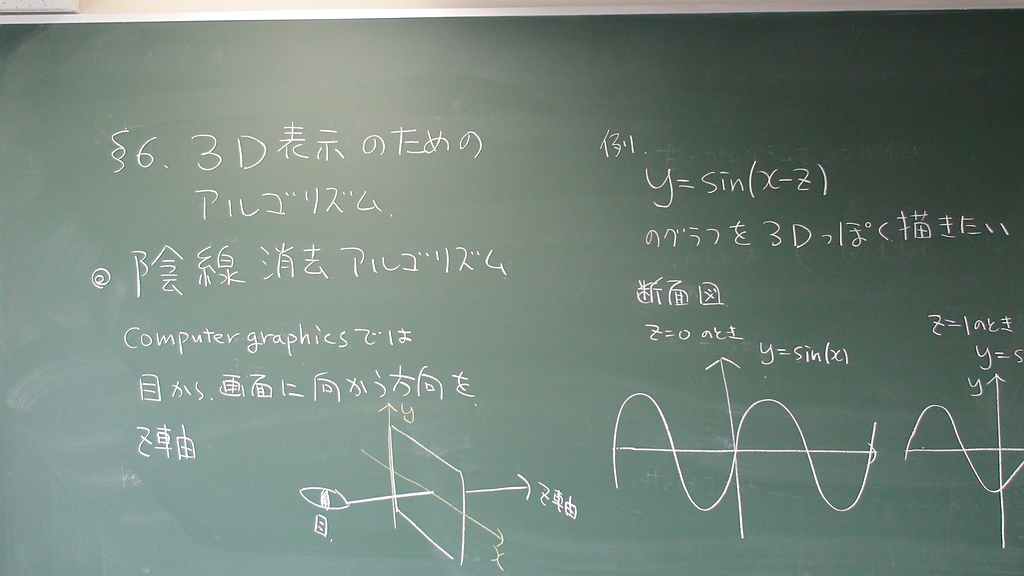 §6. 3D表示のための
アルゴリズム.
◎ 陰線消去アルゴリズム
Computer graphicsでは
目から、画面に向かう方向を
z軸
y
目.
z軸
x
例.
y=sin(x-z)
のグラフを3Dっぽく描きたい
断面図
z=0のとき
y=sin(x)
z=1のとき
y=s
y